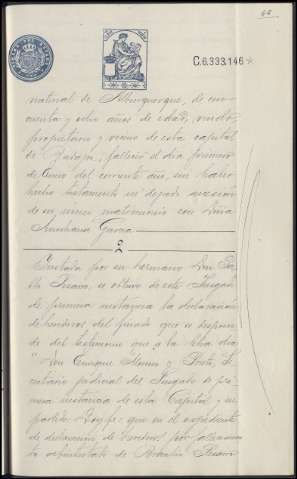 C.6.333.146
natural de Alburquerque, de cin-
cuenta y ocho años de edad, viudo
propietario y vecino de esta capital
de Badajoz, falleció el día primero
de Enero del corriente año, sin haber
hecho testamento ni dejado sucesión
de su único matrimonio con Doña
Aureliana Garcia
2
por su hermano Don Pa-
blo se obtuvo de este Juzgado
de primera instancia la declaración
de herederos del finado que se despren-
de del testimonio que a la letra dice
"Don Enrique y Se-
cretario judicial del Juzgado de pri-
mera instancia de esta Capital y su
partido. Doy fe: que en el expediente
de declaración de herederos por fallecimiento
abintestato de